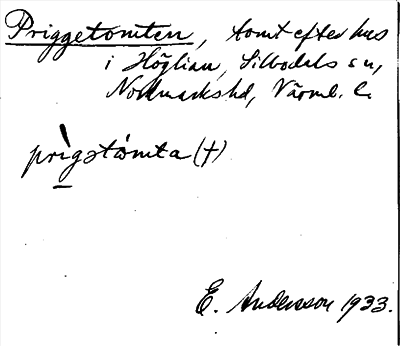 Priggetomten, tomt efter hus
i Höglian, Silbodals sn,
Nordmarks hd, Värml. l.
prìgətòmta (†)
E. Andersson 1933.